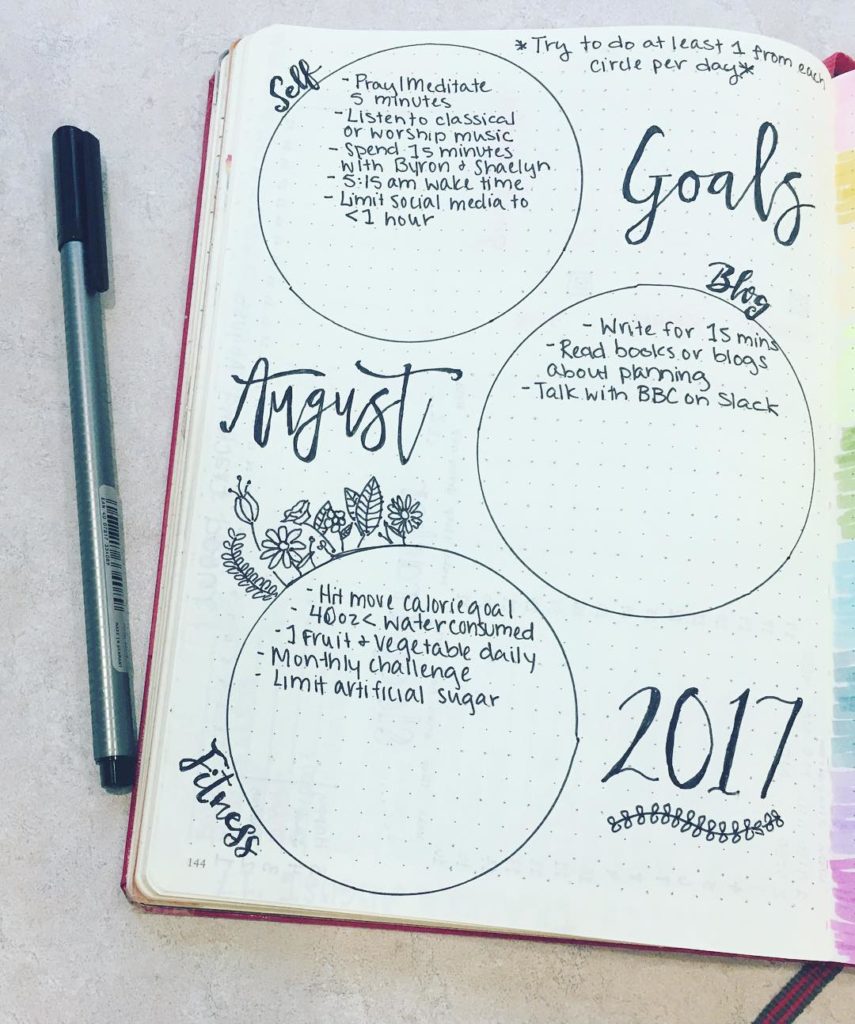 *Try to do at least 1 from each
circle per day*
Goals
Self
- Pray/Meditate
5 minutes
- Listen to classical
or worship music
- Spend 15 minutes
with Byron + Shaelyn
- 5:15 am wake time
- Limit social media to
<1 hour
Blog
- Write for 15 mins
- Read books or blogs
about planning
- Talk with BBC on Slack
August
- Hit move calorie goal
- 40oz< water consumed
- 1 fruit + vegetable daily
- Monthly challenge
- Limit artificial sugar
Fitness
2017
144